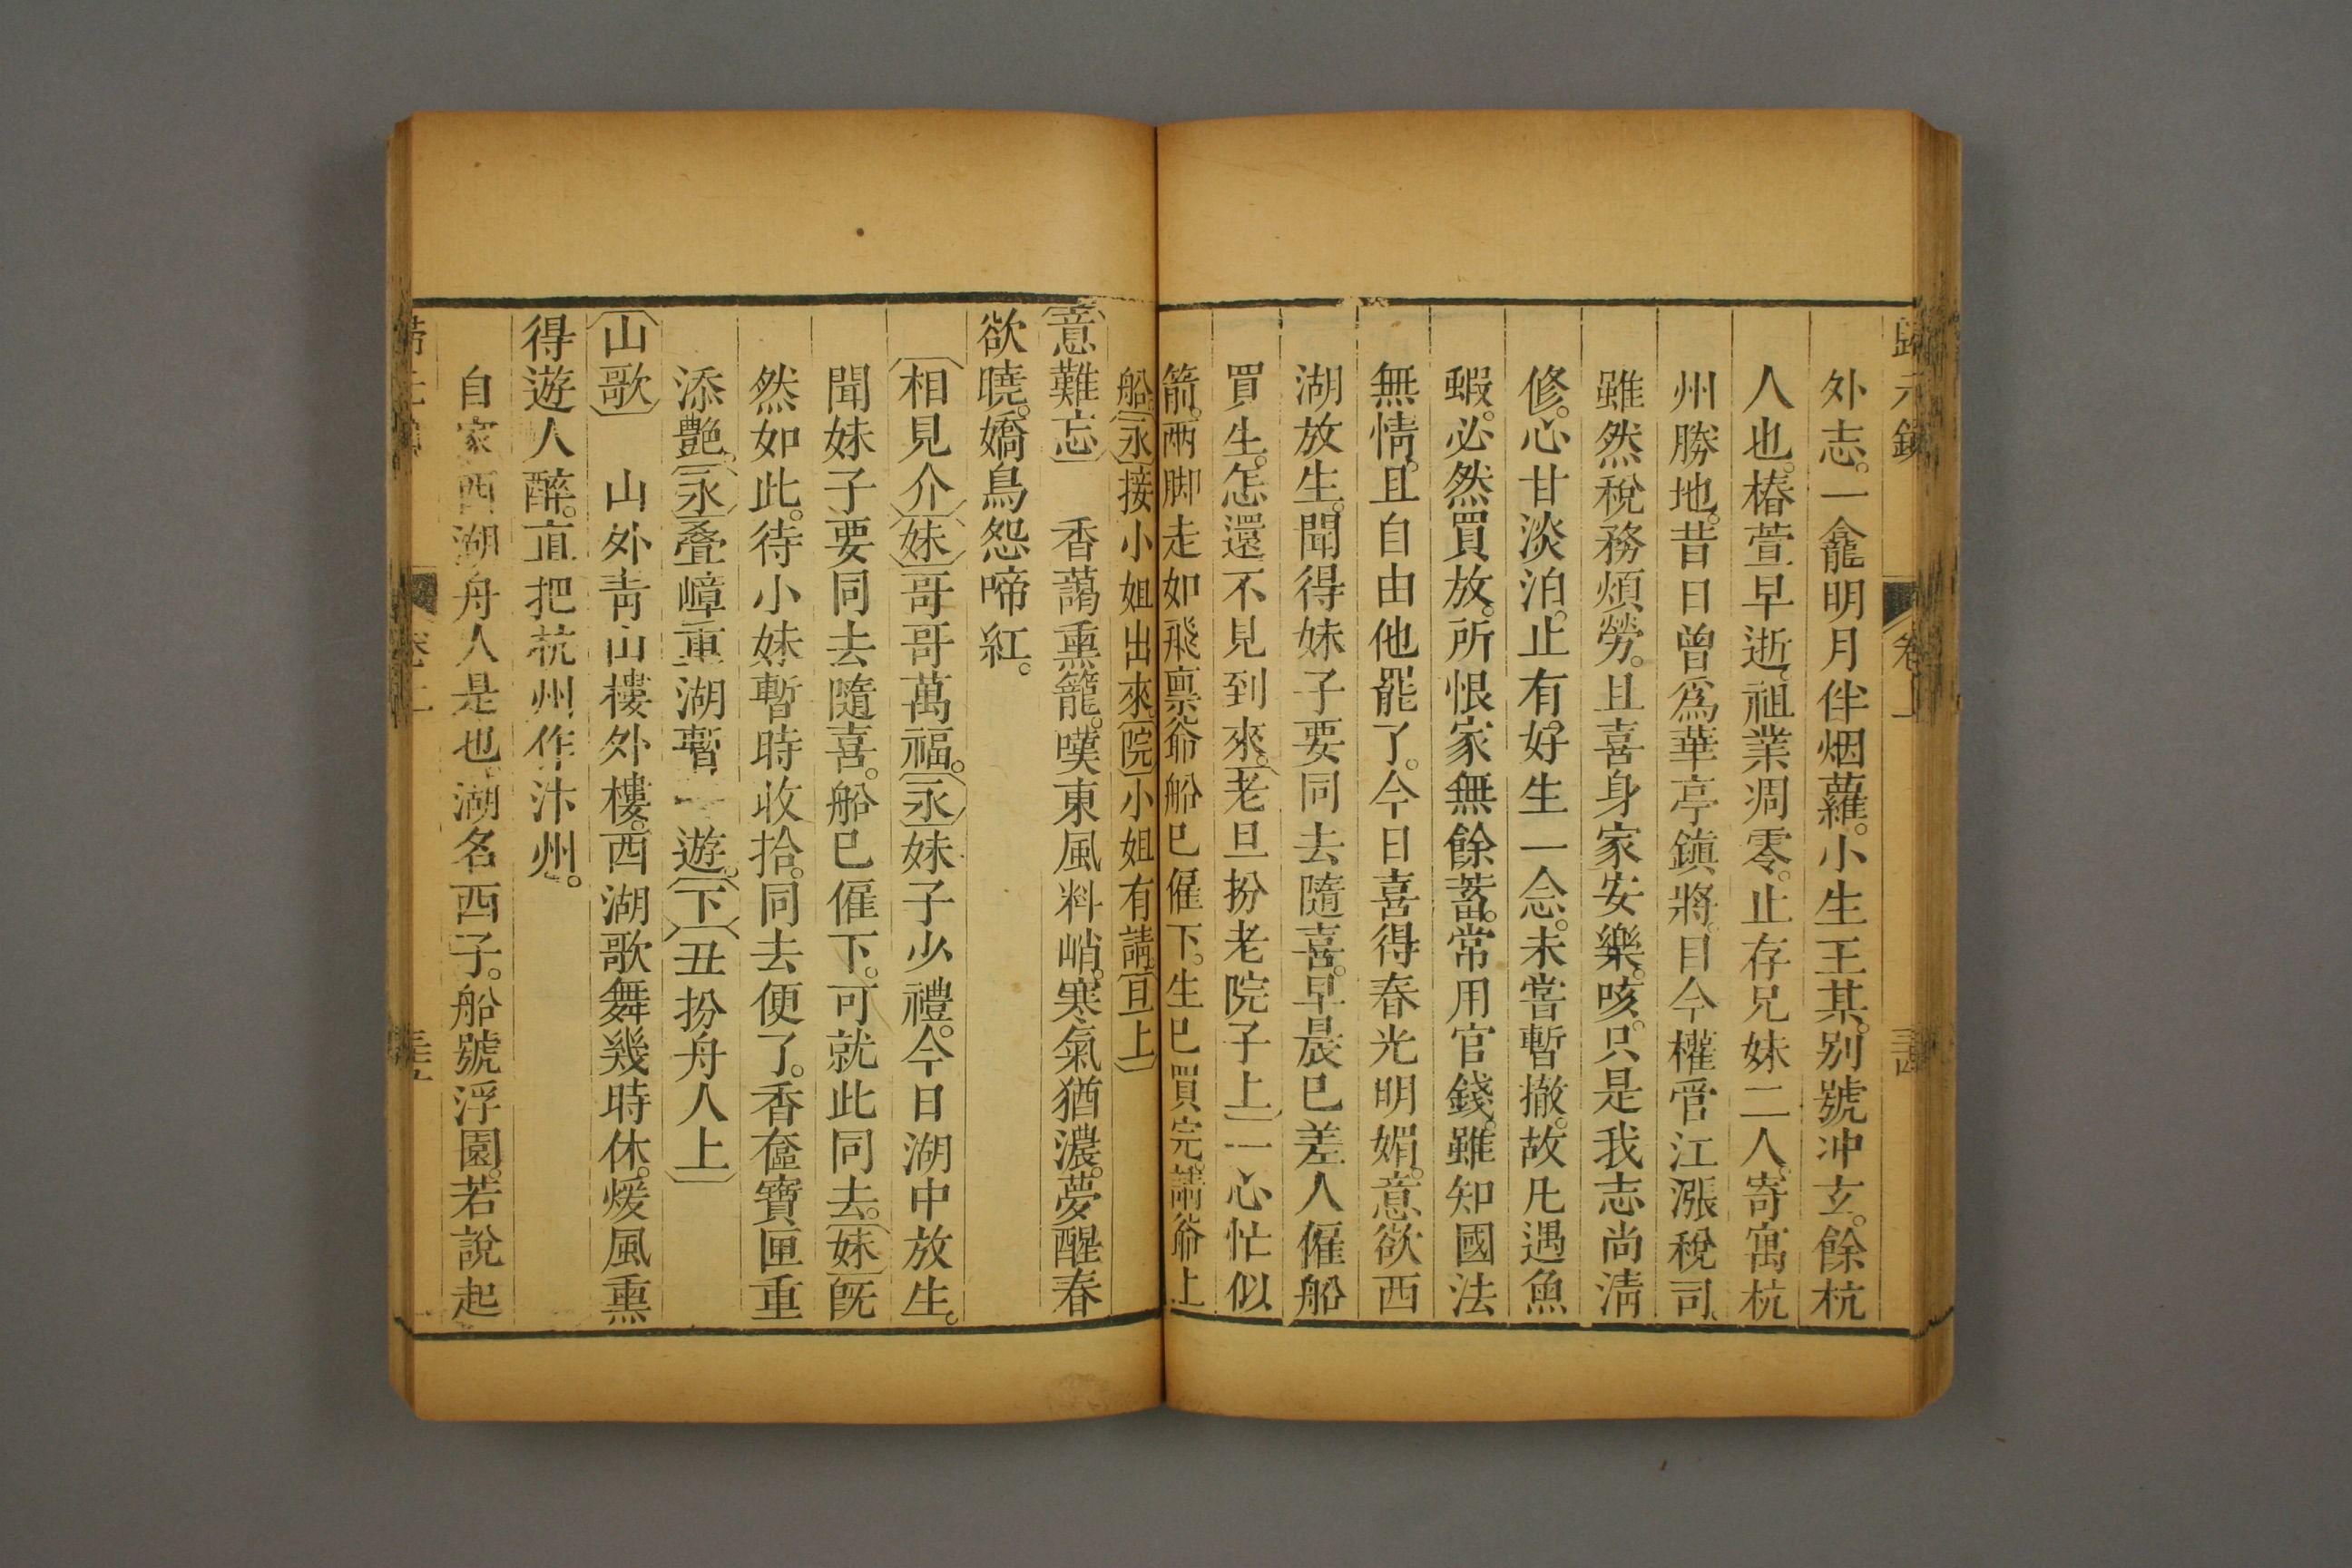 歸元鏡 卷上 三四
外志。一龕明月伴烟蘿。小生王某。别號冲玄。餘杭
人也。椿萱早逝。祖業凋零。止存兄妹二人。寄寓杭
州勝地。昔日曾爲華亭鎮將。目今權管江漲稅司。
雖然稅務煩勞。且喜身家安樂。咳。只是我志尚清
修。心甘淡泊。止有好生一念。未嘗暫撤。故凡遇魚
蝦。必然買放。所恨家無餘蓄。常用官錢。雖知國法
無情。且自由他罷了。今日喜得春光明媚。意欲西
湖放生。聞得妹子要同去隨喜。早晨已差人僱船
買生。怎還不見到來。〔老旦扮老院子上〕一心忙似
箭。兩脚走如飛。禀爺船已僱下。生已買完。請爺上
船。〔永〕接小姐出來〔院〕小姐有請〔旦上〕
〔意難忘〕香藹熏籠。嘆東風料峭。寒氣猶濃。夢醒春
欲曉。嬌鳥怨啼紅。
〔相見介〕〔妹〕哥哥萬福。〔永〕妹子少禮。今日湖中放生。
聞妹子要同去隨喜。船已僱下。可就此同去。〔妹〕旣
然如此。待小妹暫時收拾。同去便了。香奩寶匣重
添艷。〔永〕叠嶂重湖暫遊。〔下〕〔丑扮舟人上〕
〔山歌〕山外靑山樓外樓。西湖歌舞幾時休。煖風熏
得遊人醉。直把杭州作汴州。
自家西湖舟人是也。湖名西子。船號浮園。若說起